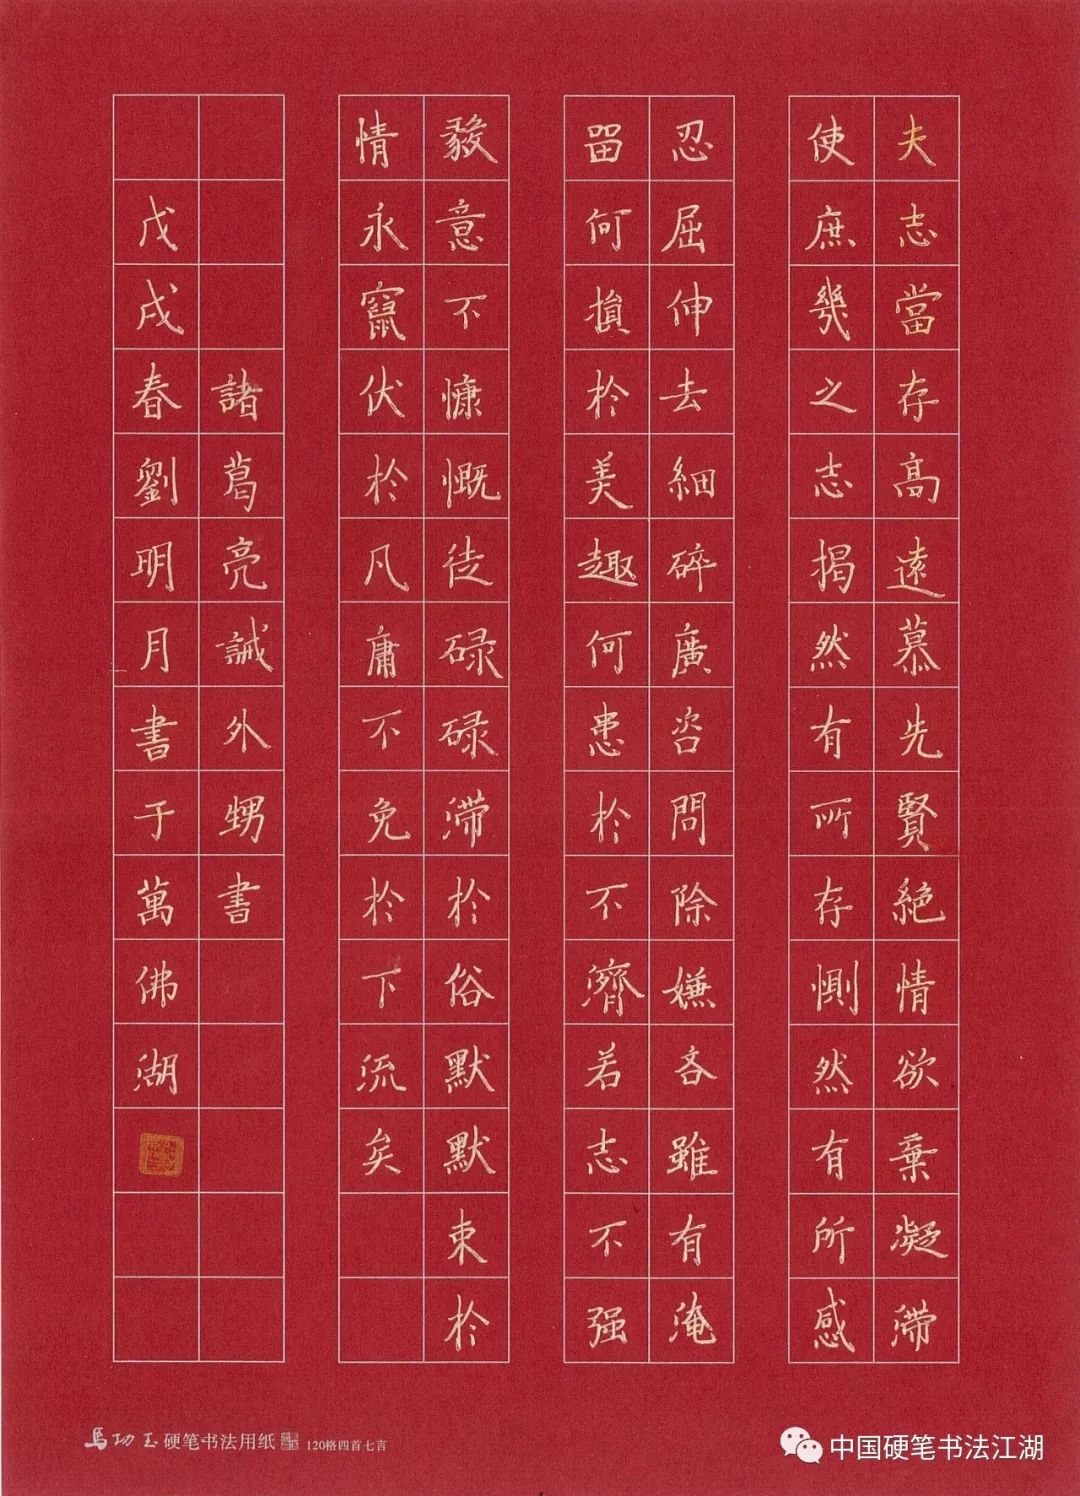 夫志當存高遠慕先賢絕情欲棄凝滯
使庶幾之志揭然有所存惻然有所感
忍屈伸去細碎廣咨問除嫌吝雖有淹
留何損於美趣何患於不濟若志不强
毅意不慷慨徒碌碌滯於俗默默束於
情永竄伏於凡庸不免於下流矣
諸葛亮誡外甥書
戊戌春劉明月書于萬佛湖
馬功玉硬笔书法用纸 120格四首七言
中国硬笔书法江湖